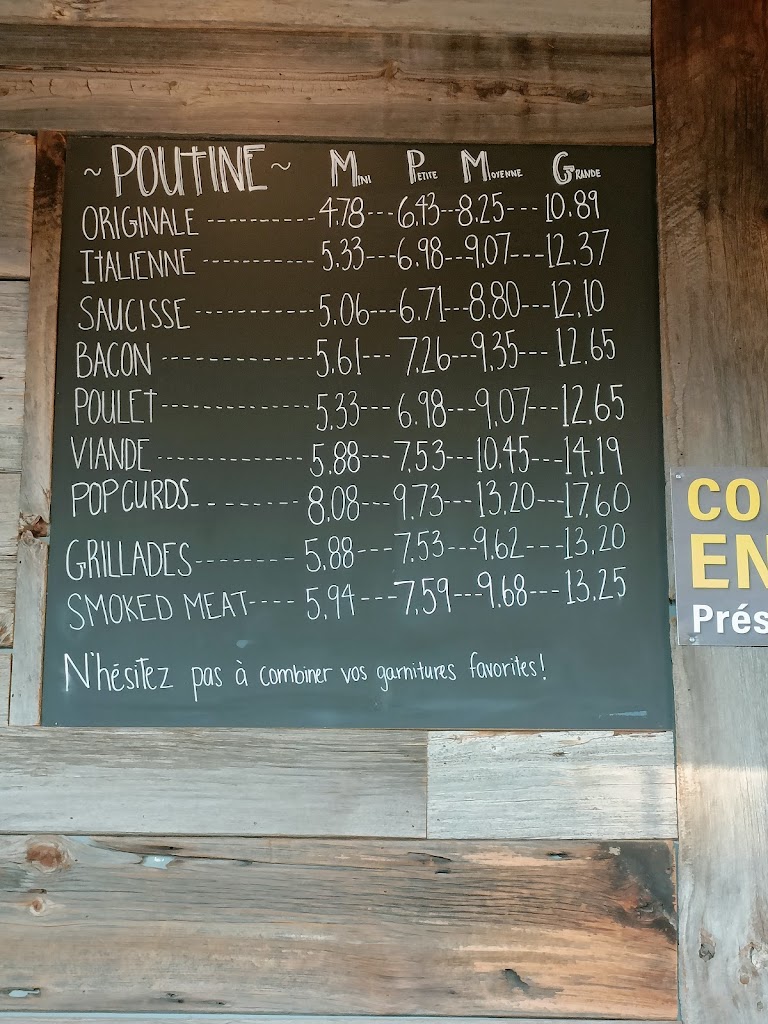 ~ POUTINE ~ MINI PETITE MOYENNE GRANDE
ORIGINALE ---------- 4.78---6.43--8.25---10.89
ITALIENNE ---------- 5.33---6.98--9.07---12.37
SAUCISSE ---------- 5.06---6.71---8.80---12.10
BACON -------------- 5.61--- 7.26---9.35--- 12.65
POULET-------------- 5.33---6.98---9.07---12.65
VIANDE -------------- 5.88---7.53---10.45---14.19
POPCURDS---------- 8.08---9.73---13.20---17.60
GRILLADES-------- 5.88---7.53---9.62---13.20
SMOKED MEAT---- 5.94---7.59---9.68---13.25
N'hésitez pas à combiner vos garnitures favorites!
CO
EN
Prés